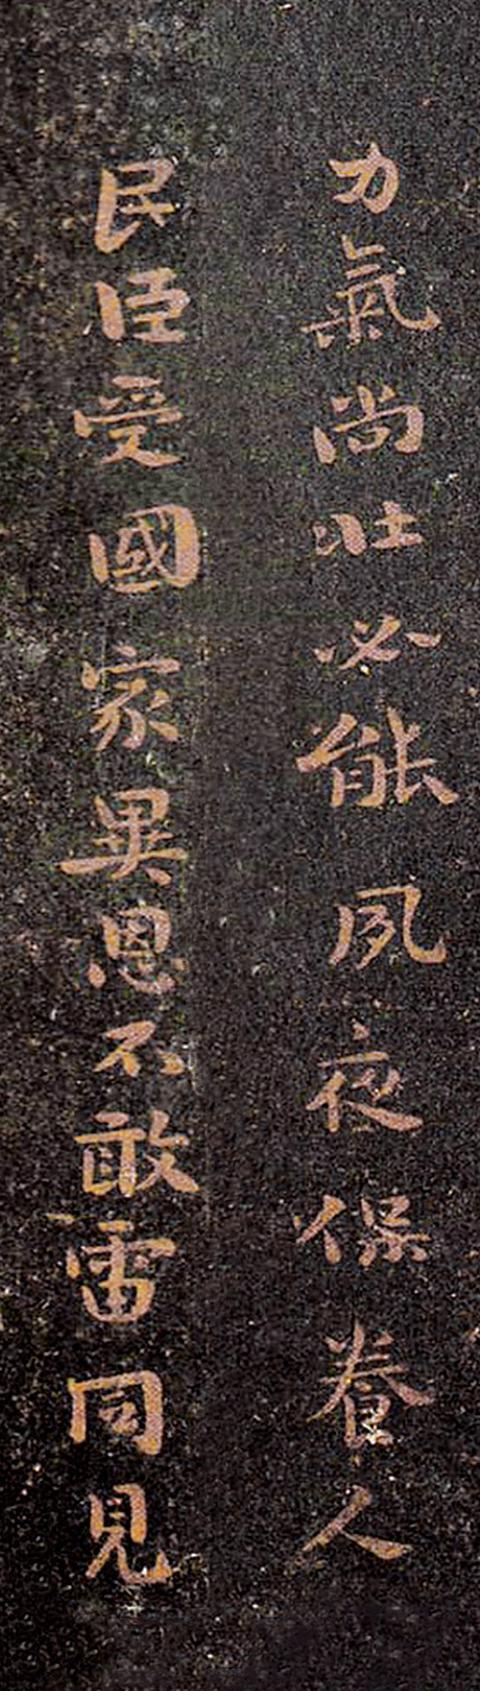 力氣尚壯必能夙夜保養人
民臣受國家異恩不敢雷同見